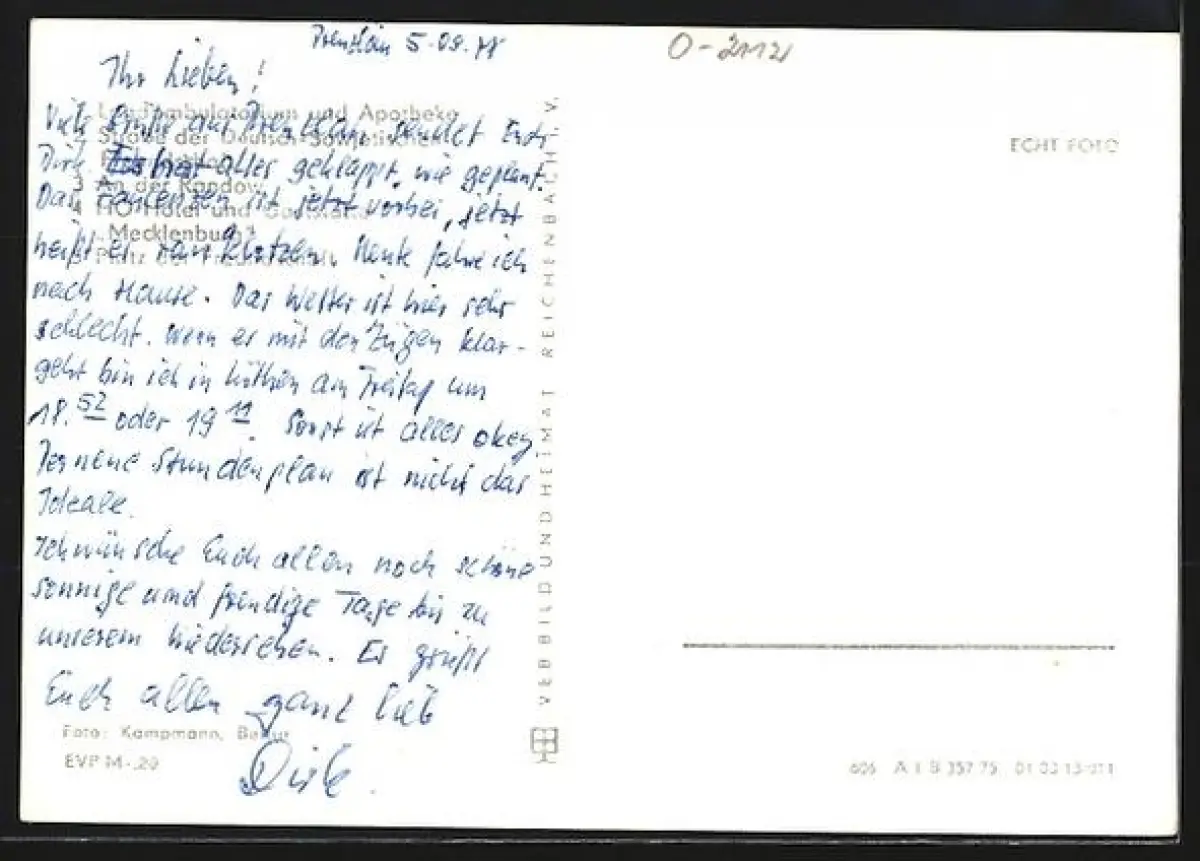 Prenzlau 5.09.78
O-2112
Ihr Lieben!
Viele Grüße aus Prenzlau sendet Euch
Dirk. Es hat alles geklappt, wie geplant.
Das Faulenzen ist jetzt vorbei, jetzt
heißt es ran klotzen. Heute fahre ich
nach Hause. Das Wetter ist hier sehr
schlecht. Wenn es mit den Zügen klar-
geht bin ich in Köthen am Freitag um
18.52 oder 19 11. Sonst ist alles okey.
Der neue Stundenplan ist nicht das
Ideale.
Ich wünsche Euch allen noch schöne
sonnige und freudige Tage bis zu
unserem Wiedersehen. Es grüßt
Euch allen ganz lieb
Dirk.
Landambulatorium und Apotheke
2 Straße der Deutsch-Sowjetischen
3 An der Randow
4 HO-Hotel und Gaststätte
„Mecklenburg"
5 Platz der Freundschaft
Foto: Kampmann, Berlin
EVP M -,20
VEB BILD UND HEIMAT REICHENBACH I. V.
ECHT FOTO
A 1 B 357 75 01 03 13 011